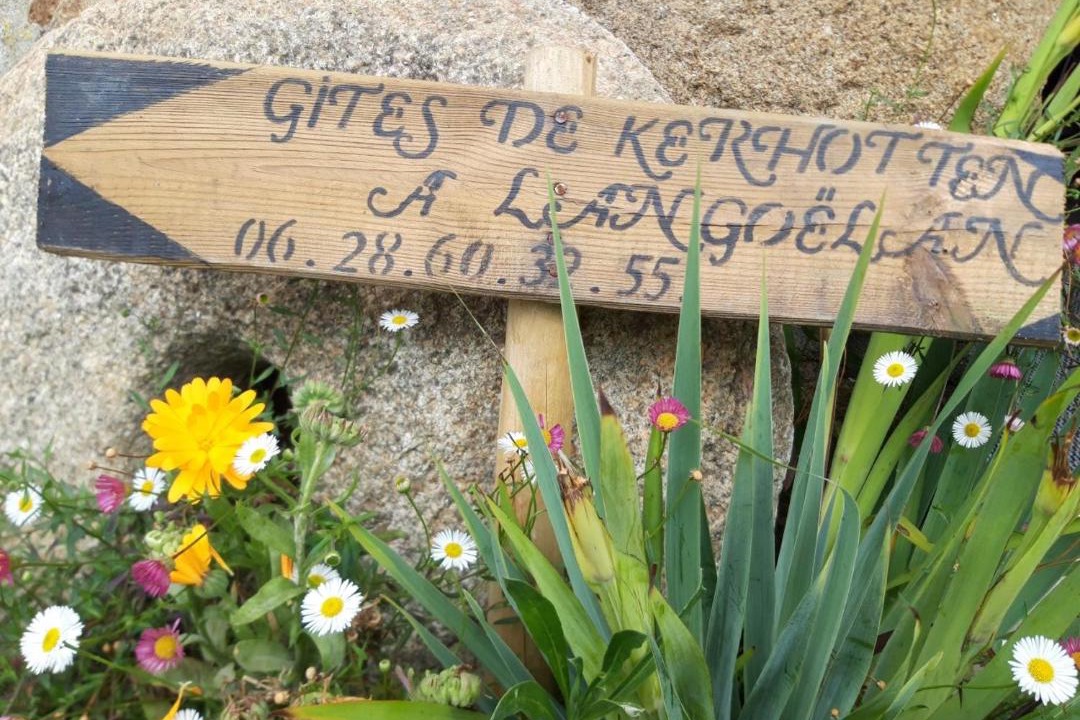 GITES DE KERHOTTEN
A LEANGOËLAN
06.28.60.32.55